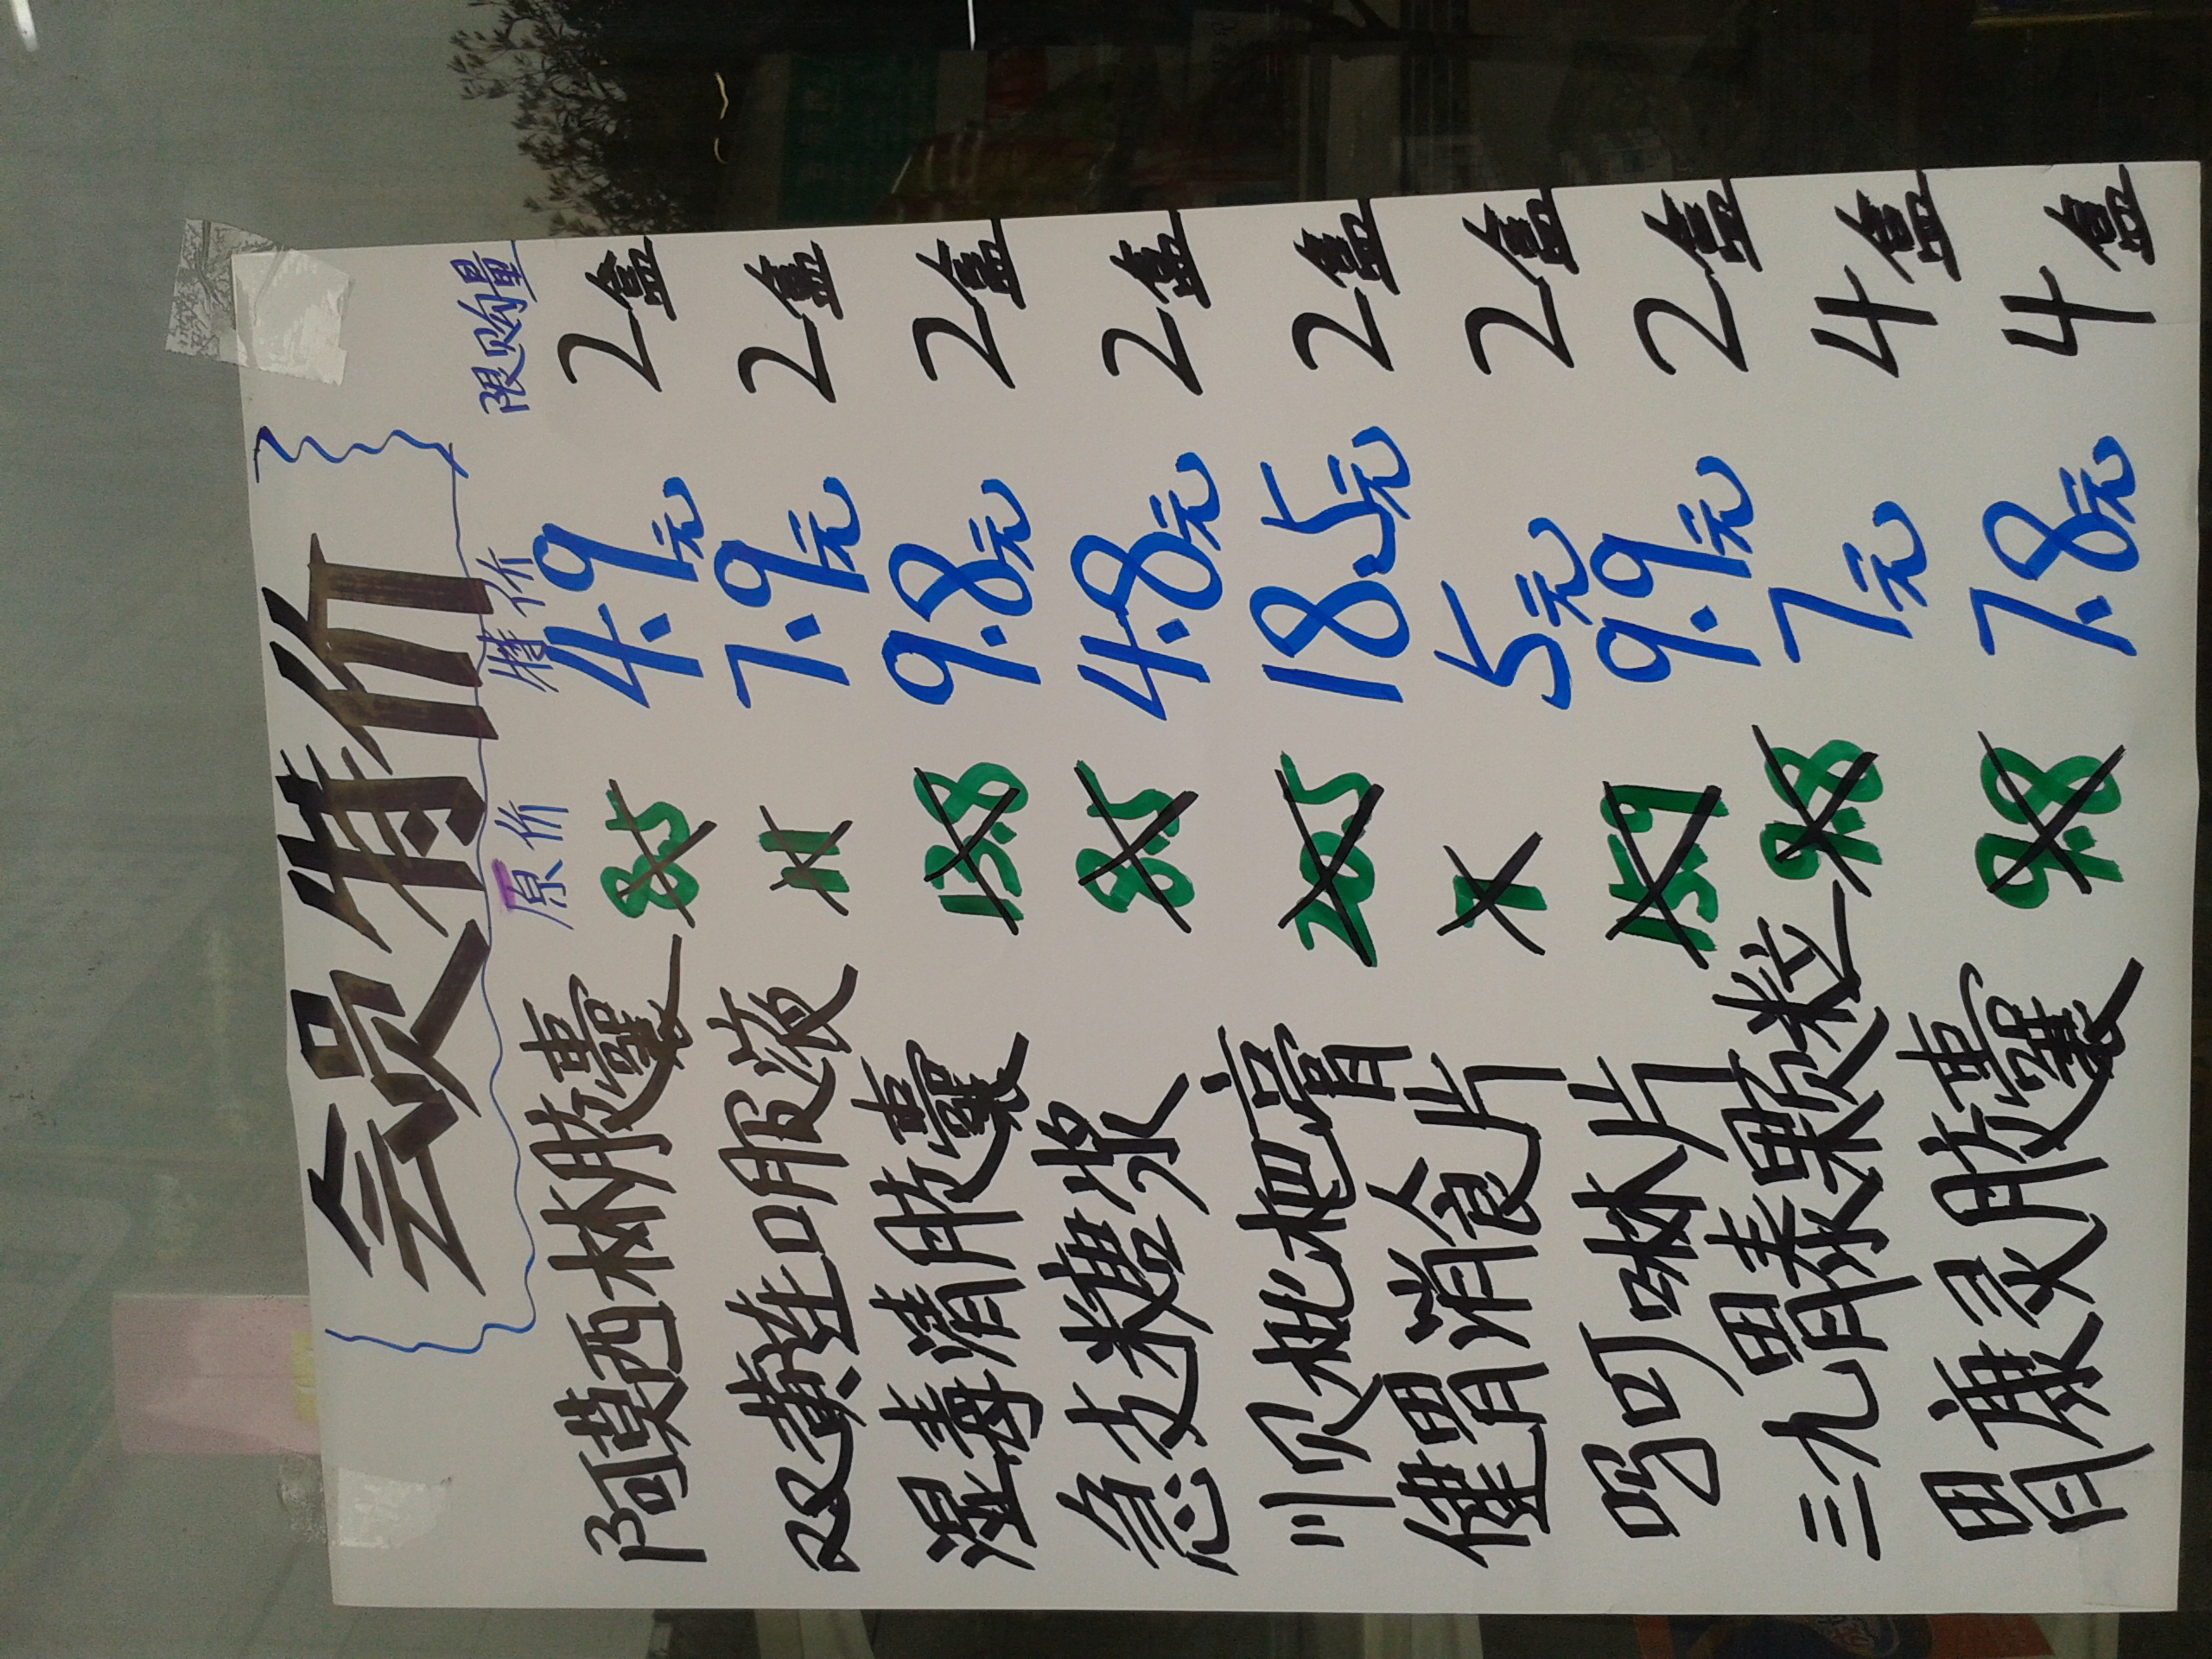 会员特价
原价 特价 限购量
阿莫西林胶囊 8.5 4.9元 2盒
双黄连口服液 11 7.9元 2盒
湿毒清胶囊 13.8 9.8元 2盒
急支糖浆 8.5 4.8元 2盒
川贝枇杷膏 20.5 18.5元 2盒
健胃消食片 7 5元 2盒
吗可咻片 15.9 9.9元 2盒
三九胃泰颗粒 9.8 7元 4盒
胃康灵胶囊 9.8 7.8元 4盒